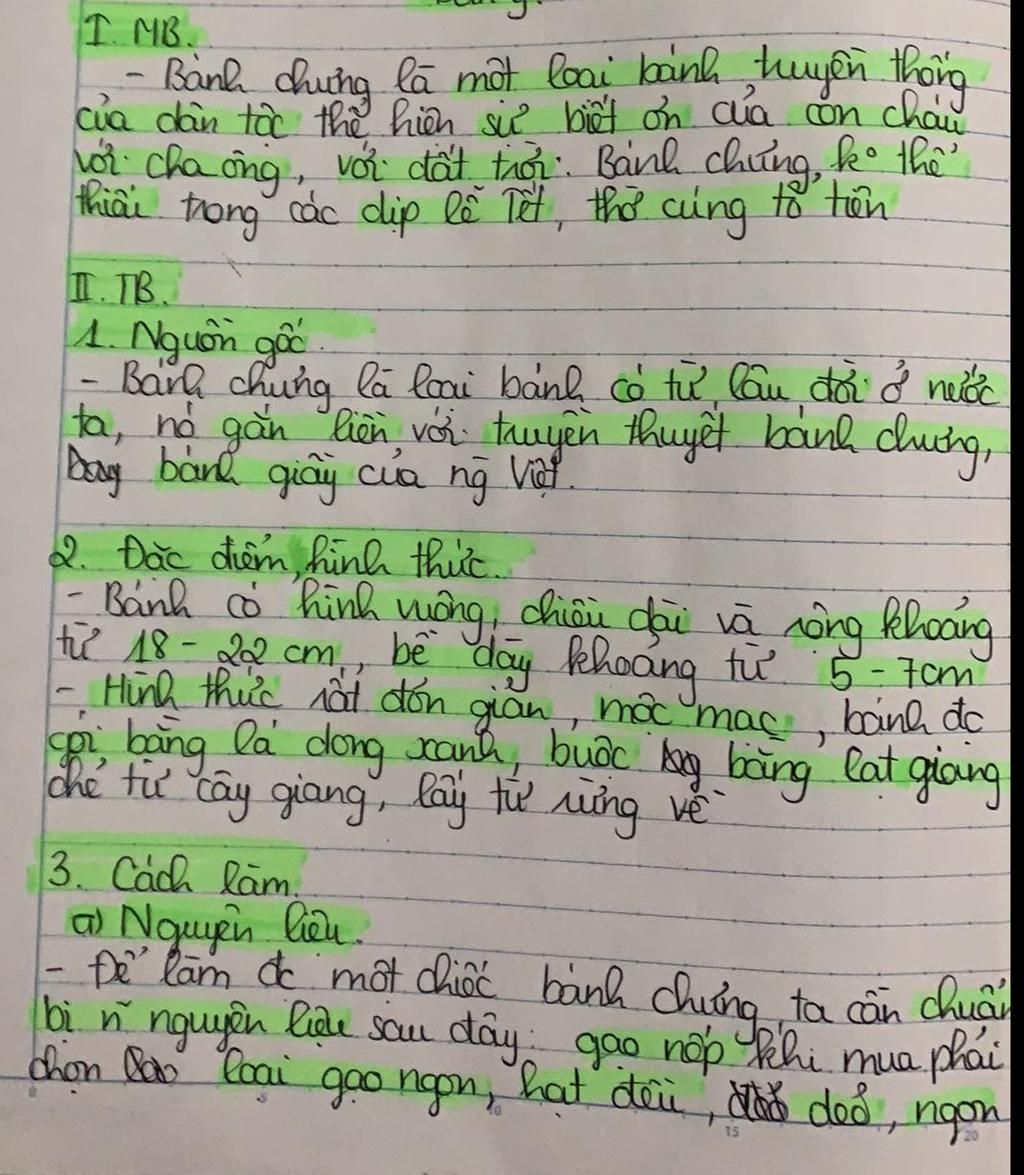 I. MB.
- Bánh chưng là một loại bánh truyền thống
của dân tộc thể hiện sự biết ơn của con cháu
với cha ông, với đất trời. Bánh chưng, ko thể
thiếu trong các dịp lễ Tết, thờ cúng tổ tiên
II. TB.
1. Nguồn gốc.
- Bánh chưng là loại bánh có từ lâu đời ở nước
ta, nó gắn liền với truyền thuyết bánh chưng,
bánh giầy của ng̃ Việt.
2. Đặc điểm, hình thức.
- Bánh có hình vuông, chiều dài và rộng khoảng
từ 18 - 22 cm, bề dày khoảng từ 5 - 7cm
- Hình thức rất đơn giản, mộc mạc, bánh đc
gói bằng lá dong xanh, buộc bằng lạt giang
chẻ từ cây giang, lấy từ rừng về
3. Cách làm.
a) Nguyên liệu.
- Để làm đc một chiếc bánh chưng, ta cần chuẩn
bị ñ nguyên liệu sau đây: gạo nếp khi mua phải
chọn loại gạo ngon, hạt đều, dẻo, ngon